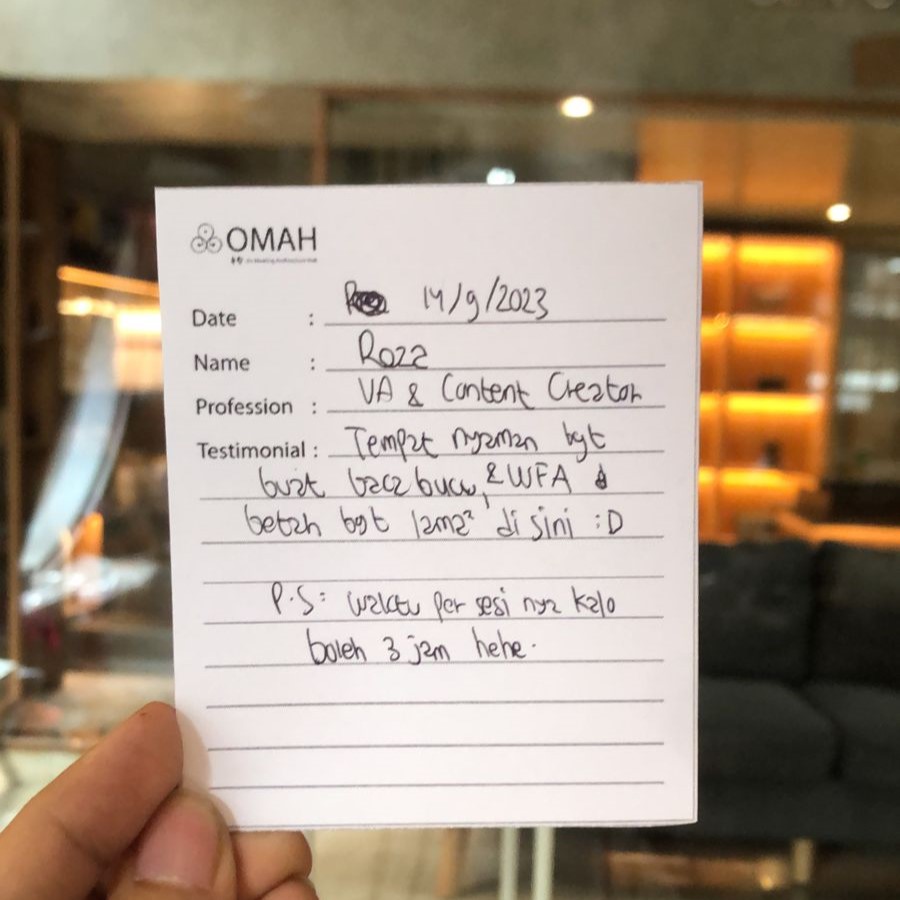 OMAH
Date : 14/9/2023
Name : Rozz
Profession : VA & Content Creator
Testimonial : Tempat nyaman bgt
buat baca buku, & WFA
betah bgt lama² di sini :D
P.S: waktu per sesi nya kalo
boleh 3 jam hehe.